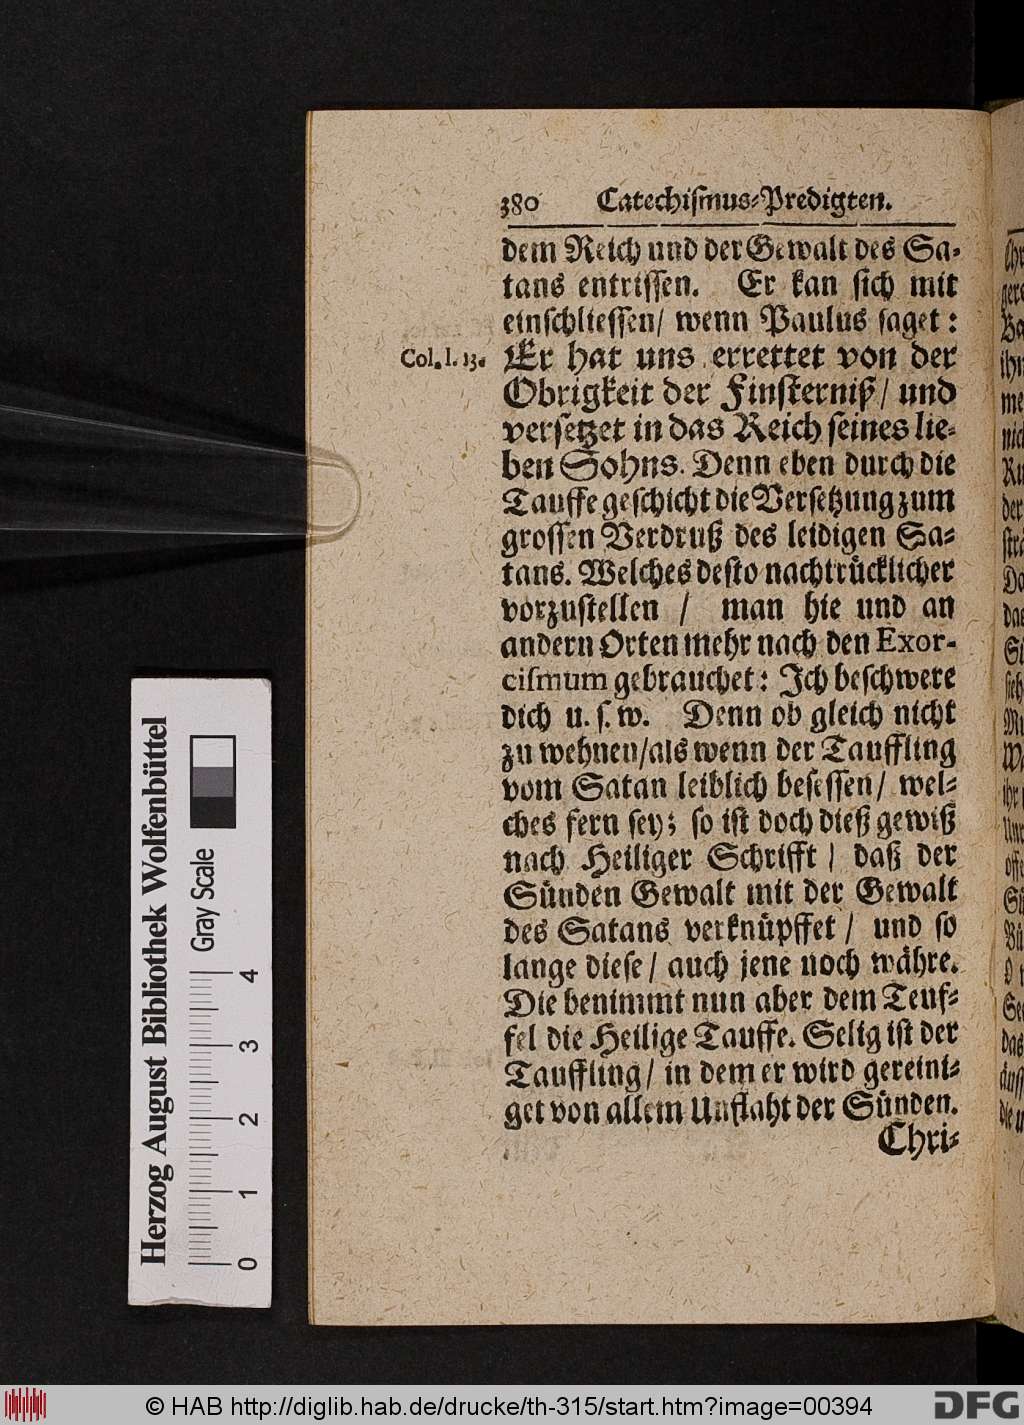 380 Catechiſmus-Predigten.
dem Reich und der Gewalt des Sa-
tans entriſſen. Er kan ſich mit
einſchlieſſen/ wenn Paulus ſaget:
Col. I. 13. Er hat uns errettet von der
Obrigkeit der Finſterniß/ und
verſetzet in das Reich ſeines lie-
ben Sohns. Denn eben durch die
Tauffe geſchicht die Verſetzung zum
groſſen Verdruß des leidigen Sa-
tans. Welches deſto nachtrücklicher
vorzuſtellen / man hie und an
andern Orten mehr nach den Exor-
ciſmum gebrauchet: Ich beſchwere
dich u. ſ. w. Denn ob gleich nicht
zu wehnen/als wenn der Tauffling
vom Satan leiblich beſeſſen/ wel-
ches fern ſey; ſo iſt doch dieß gewiß
nach Heiliger Schrifft / daß der
Sünden Gewalt mit der Gewalt
des Satans verknüpffet / und ſo
lange dieſe/ auch jene noch währe.
Die benimmt nun aber dem Teuf-
fel die Heilige Tauffe. Selig iſt der
Tauffling/ in dem er wird gereini-
get von allem Unflaht der Sünden.
Chri-
Herzog August Bibliothek Wolfenbüttel
Gray Scale
0 1 2 3 4
© HAB http://diglib.hab.de/drucke/th-315/start.htm?image=00394
DFG